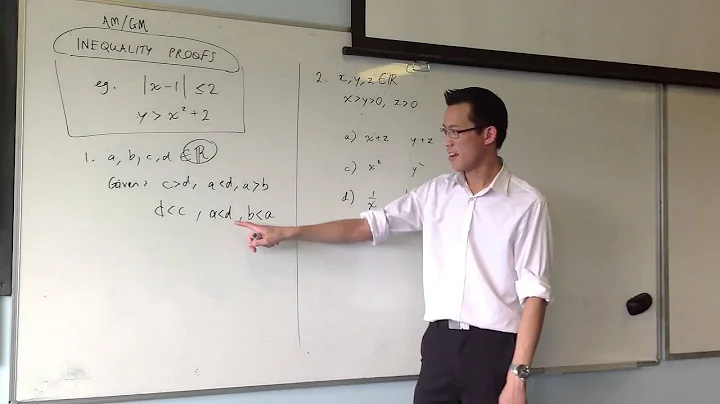 AM/GM
INEQUALITY PROOFS
eg. |x-1| ≤ 2
y > x² + 2
1. a, b, c, d ∈ ℝ
Given: c>d, a<d, a>b
d<c, a<d, b<a
2. x, y, z ∈ ℝ
x>y>0, z>0
a) x+z y+z
c) x² y²
d) 1/x